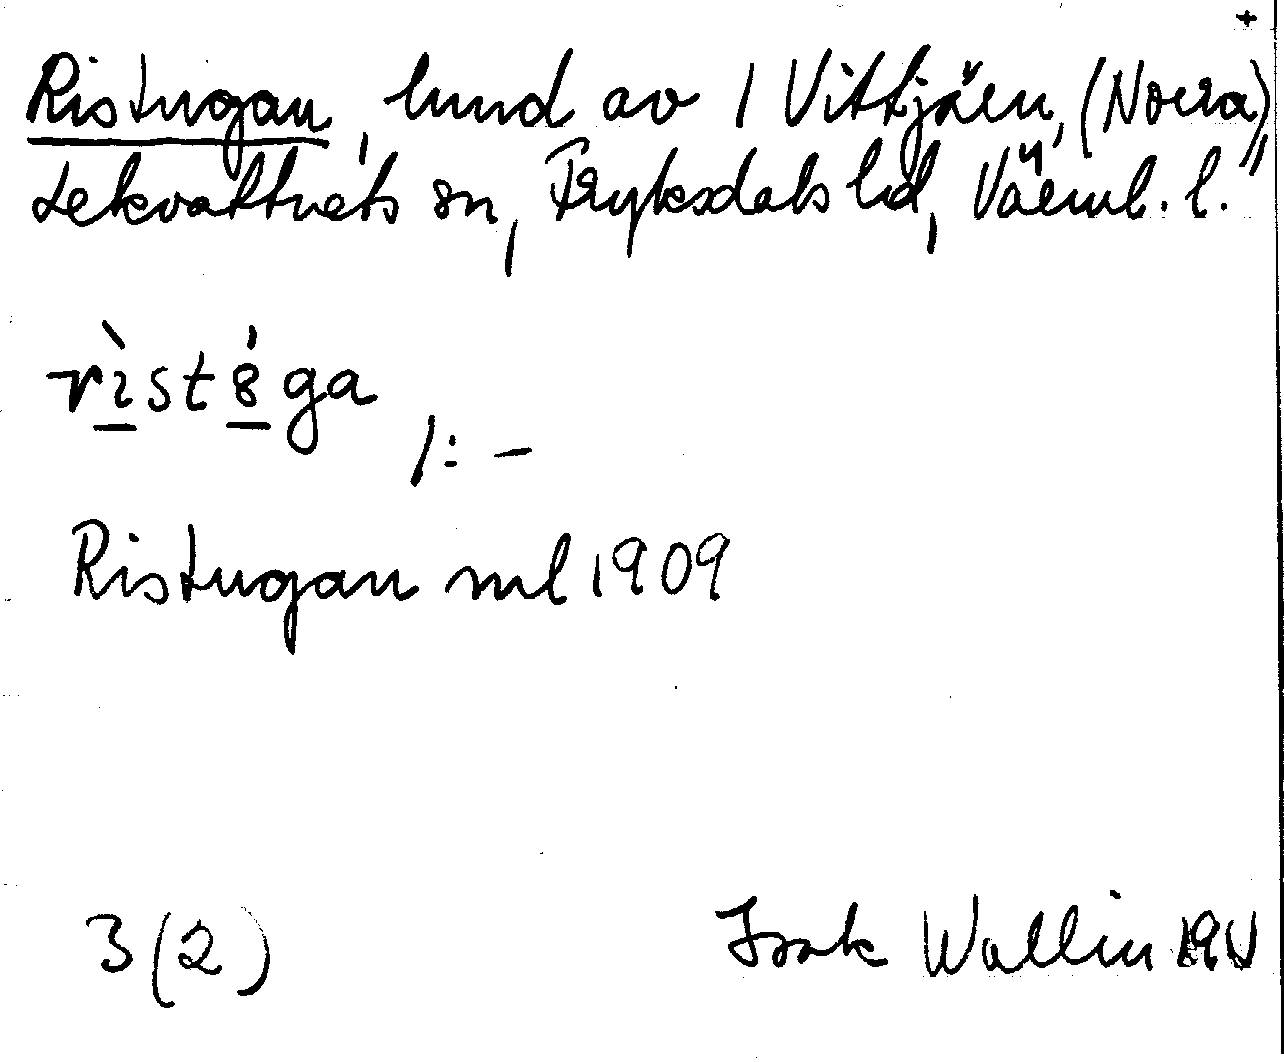 +
Ristugan, lund av 1 Vittjärn, (Norra),
Lekvattnets sn, Fryksdals hd, Värml. l.
rìstȣ́ga
/: –
Ristugan ml 1909
3 (2)
Isak Wallin